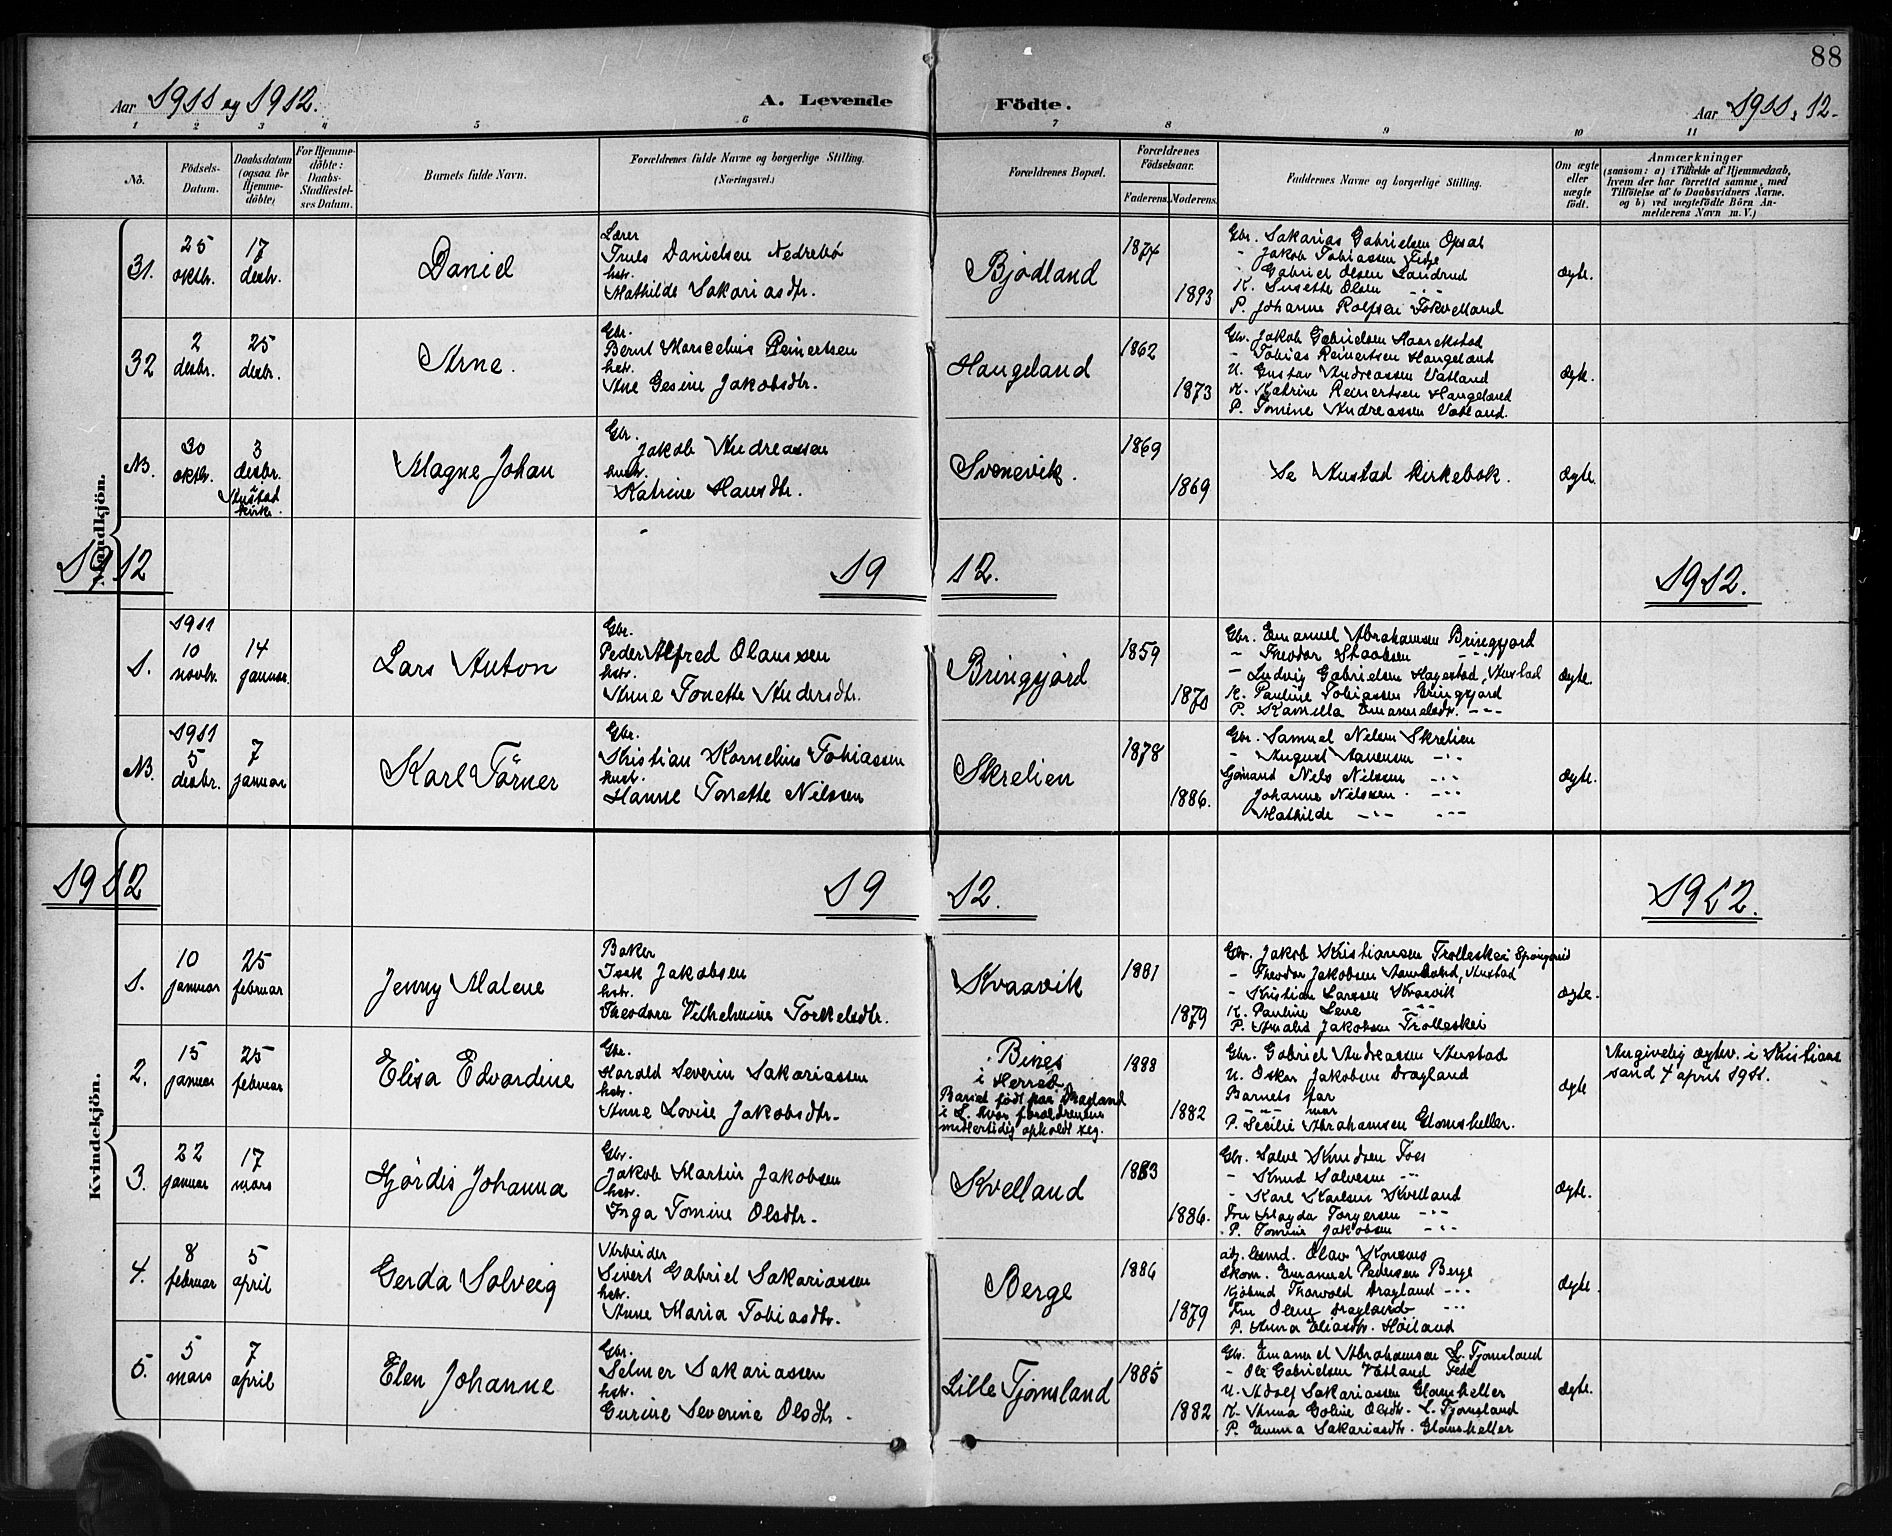 88
Aar 1911 og 1912. A. Levende Födte. Aar 1911, 12.
1 2 3 4 5 6 7 8 9 10 11
No. Födsels-Datum. Daabsdatum (ogsaa for Hjemme-döbte) For Hjemme-döbte: Daabs-Stadfæstel-ses Datum. Barnets fulde Navn. Forældrenes fulde Navne og borgerlige Stilling. (Næringsvei.) Forældrenes Bopæl. Forældrenes Födselsaar. Faderens. Moderens. Faddernes Navne og borgerlige Stilling. Om ægte eller uægte födt. Anmærkninger (saasom: a) i Tilfælde af Hjemmedaab, hvem der har forrettet samme, med Tilföielse af to Daabsvidners Navne. og b) ved uægtefödte Börn An-melderens Navn m. V.)
Mandkjön.
31. 25 oktbr. 17 desbr. Daniel
Lærer
Truls Danielsen Nedrebö
hstr.
Mathilde Sakariasdtr.
Bjödland 1874 1893
Gbr. Sakarias Gabrielsen Opsal
- Jakob Tobiassen
- Gabriel Olsen Landrud
K. Susette Olsen -"-
P. Johanne Rolfsen
ægte.
32 2 desbr. 25 desbr. Arne.
Gbr.
Bernt Marselius Reinertsen
hstr.
Ane Gesine Jakobsdtr.
Haugeland 1862 1873
Gbr. Jakob Gabrielsen
- Tobias Reinertsen Haugeland
U. Gustav Andreassen Vatland
K. Katrine Reinertsen Haugeland
P. Tomine Andreassen Vatland.
ægte.
N. 30 oktbr. 3 desbr. Austad kirke. Magne Johan
Gbr.
Jakob Andreassen
hustr.
Katrine Hansdtr.
Svenevik. 1869 1869
Se Austad kirkebok.
ægte.
1912 19 12. 1912.
1. 1911 10 novbr. 14 januar. Lars Anton
Gbr.
Peder Alfred Olaussen
hstr.
Anne Tonette Andersdtr.
Bringsjord 1859 1870
Gbr. Emanuel Abrahamsen Bringsjord
- Theodor -"-
- Ludvig Gabrielsen Hagestad, Austad
K. Pauline Tobiassen Bringsjord
P. Kamilla Emanuelsdr. ---
ægte.
N. 1911 5 desbr. 7 januar Karl Törner
Gbr.
Kristian Kornelius Tobiassen
hustr.
Hanne Tonette Nilssen
Skrelien 1878 1886.
Gbr. Samuel Nilsen Skrelien
- August Aanensen -"-
Sjömand Nils Nilssen -"-
Johanne Nilssen -"-
Mathilde -"- -"-
ægte.
Kvindekjön.
1912 19 12. 1912.
1. 10 januar 25 februar Jenny Malene
Baker
Isak Jakobsen
hstr.
Theodora Vilhelmine Torkelsdtr.
Kvaavik 1881 1879
Gbr. Jakob Kristiansen Trolleskei
- Theodor Jakobsen Austad
- Kristian Larssen Kvaavik
K. Pauline Lene -"-
P. Amalie Jakobsen Trolleskei
ægte.
2. 15 januar 25 februar Elisa Edvardine
Gbr.
Harald Severin Sakariassen
hstr.
Anne Lovise Jakobsdtr.
Bines
i Herred.
Barnet födt paa Dragland
i L. hvor forældrenene
midlertidig opholdt seg.
1888 1882
Gbr. Gabriel Andreassen Austad
U. Oskar Jakobsen Dragland
Barnets far
--- mor
P. Secilie Abrahamsen Glomsheller.
ægte
Angivelig ægtev. i Kristian-
sand 7 april 1911.
3. 22 januar 17 mars Hjördis Johanna
Gbr.
Jakob Martin Jakobsen
hstr.
Inga Tomine Olsdtr.
Kvelland 1883 1886.
Gbr. Salve Knudsen Foss
- Knud Salvesen -"-
- Karl Karlsen Kvelland
Fru Magda Torgersen -"-
P. Tomine Jakobsen -"-
ægte.
4. 8 februar 5 april Gerda Solveig
Arbeider
Sivert Gabriel Sakariassen
hstr.
Anne Maria Tobiasdtr.
Berge 1886 1879
Olav
Skom. Emanuel Pedersen Berge
Kjöbmd Thorvald Dragland ---
Fru Olene Dragland ---
P. Anna Eliasdtr. Höiland
ægte.
5. 5 mars 7 april Elen Johanne
Gbr.
Selmer Sakariassen
hstr.
Gurine Severine Olsdtr.
Lille Tjomsland 1885 1882
Gbr. Emanuel Abrahamsen L. Tjomsland
- Ole Gabrielsen Vatland Feda
U. Adolf Sakariassen Glomsheller
K. Anna Goline Olsdtr. L. Tjomsland
P. Emma Sakariasdtr. Glomsheller
ægte.